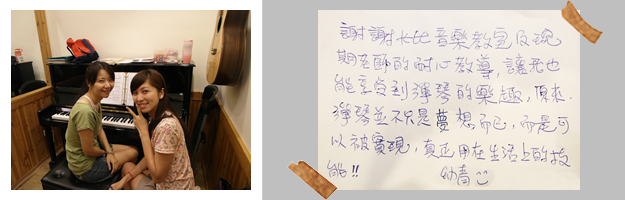 謝謝水比音樂教室及琬
期老師的耐心教導，讓我也
能享受到彈琴的樂趣，原來
彈琴並不只是夢想而已，而是可
以被實現，真正用在生活上的技
能!!　幼青